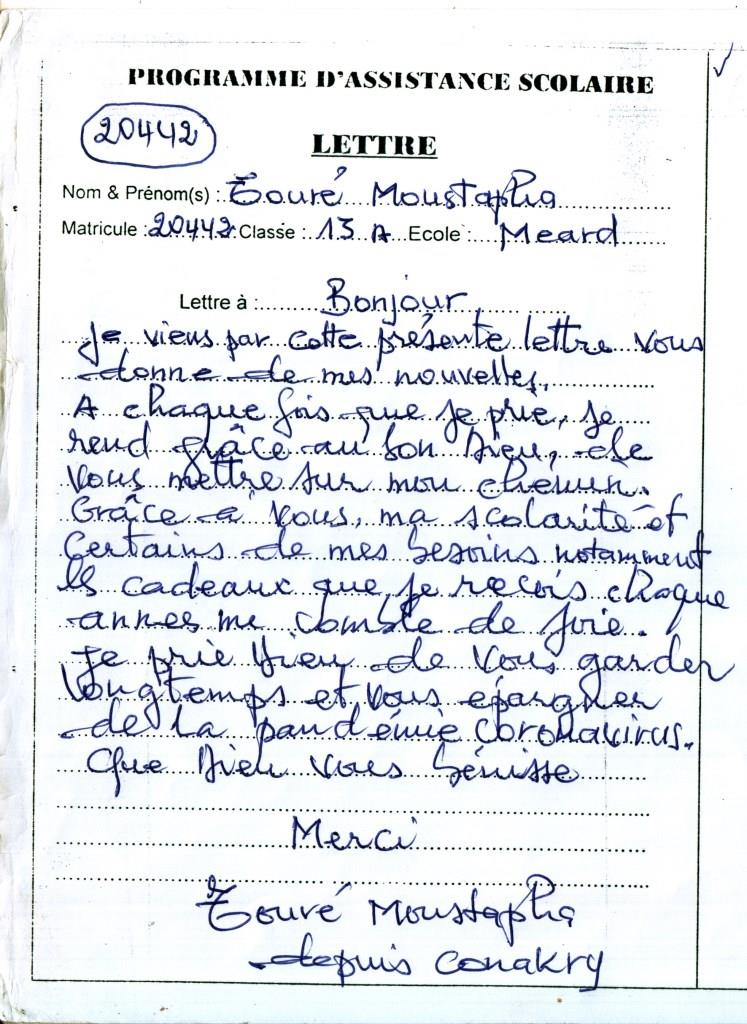 PROGRAMME D'ASSISTANCE SCOLAIRE
20442
LETTRE
Nom & Prénom(s) : Touré Moustapha
Matricule : 20442 Classe : 13 A Ecole : Meard
Lettre à : Bonjour
Je viens par cette présente lettre vous
donne de mes nouvelles.
A chaque fois que je prie, je
rend grâce au bon Dieu, de
vous mettre sur mon chemin.
Grâce à vous, ma scolarité et
Certains de mes besoins notamment
les cadeaux que je reçois chaque
annes me comble de joie.
Je prie Dieu de vous garder
longtemps et vous epargner
de la pandémie coronavirus.
Que Dieu vous bénisse
Merci
Touré Moustapha
depuis Conakry